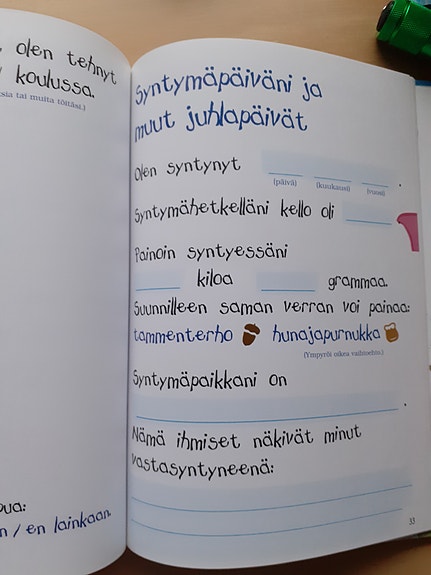 , olen tehnyt
koulussa.
sia tai muita töitäsi.)
pua:
n / en lainkaan.
Syntymäpäiväni ja
muut juhlapäivät
Olen syntynyt
(päivä) (kuukausi) (vuosi)
Syntymähetkelläni kello oli
Painoin syntyessäni
kiloa grammaa.
Suunnilleen saman verran voi painaa:
tammenterho hunajapurnukka
(Ympyröi oikea vaihtoehto.)
Syntymäpaikkani on
Nämä ihmiset näkivät minut
vastasyntyneenä:
33